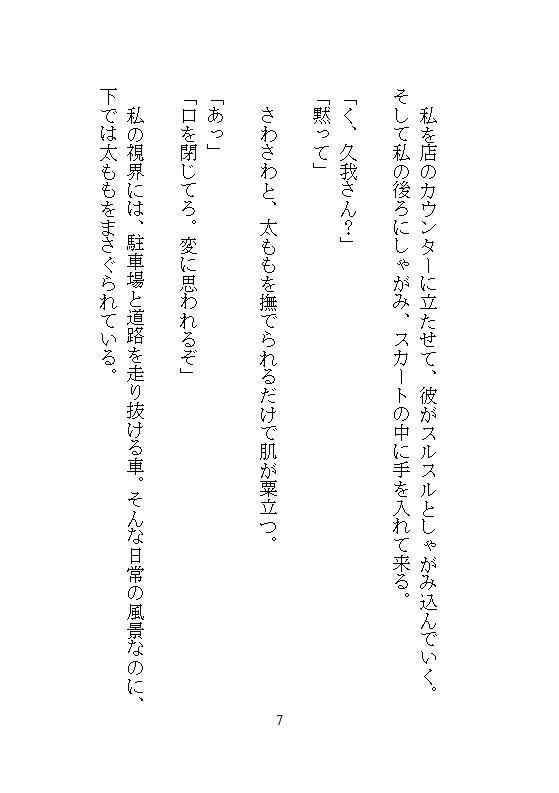 私を店のカウンターに立たせて、彼がスルスルとしゃがみ込んでいく。
そして私の後ろにしゃがみ、スカートの中に手を入れて来る。
「く、久我さん？」
「黙って」
さわさわと、太ももを撫でられるだけで肌が粟立つ。
「あっ」
「口を閉じてろ。変に思われるぞ」
私の視界には、駐車場と道路を走り抜ける車。そんな日常の風景なのに、
下では太ももをまさぐられている。
7